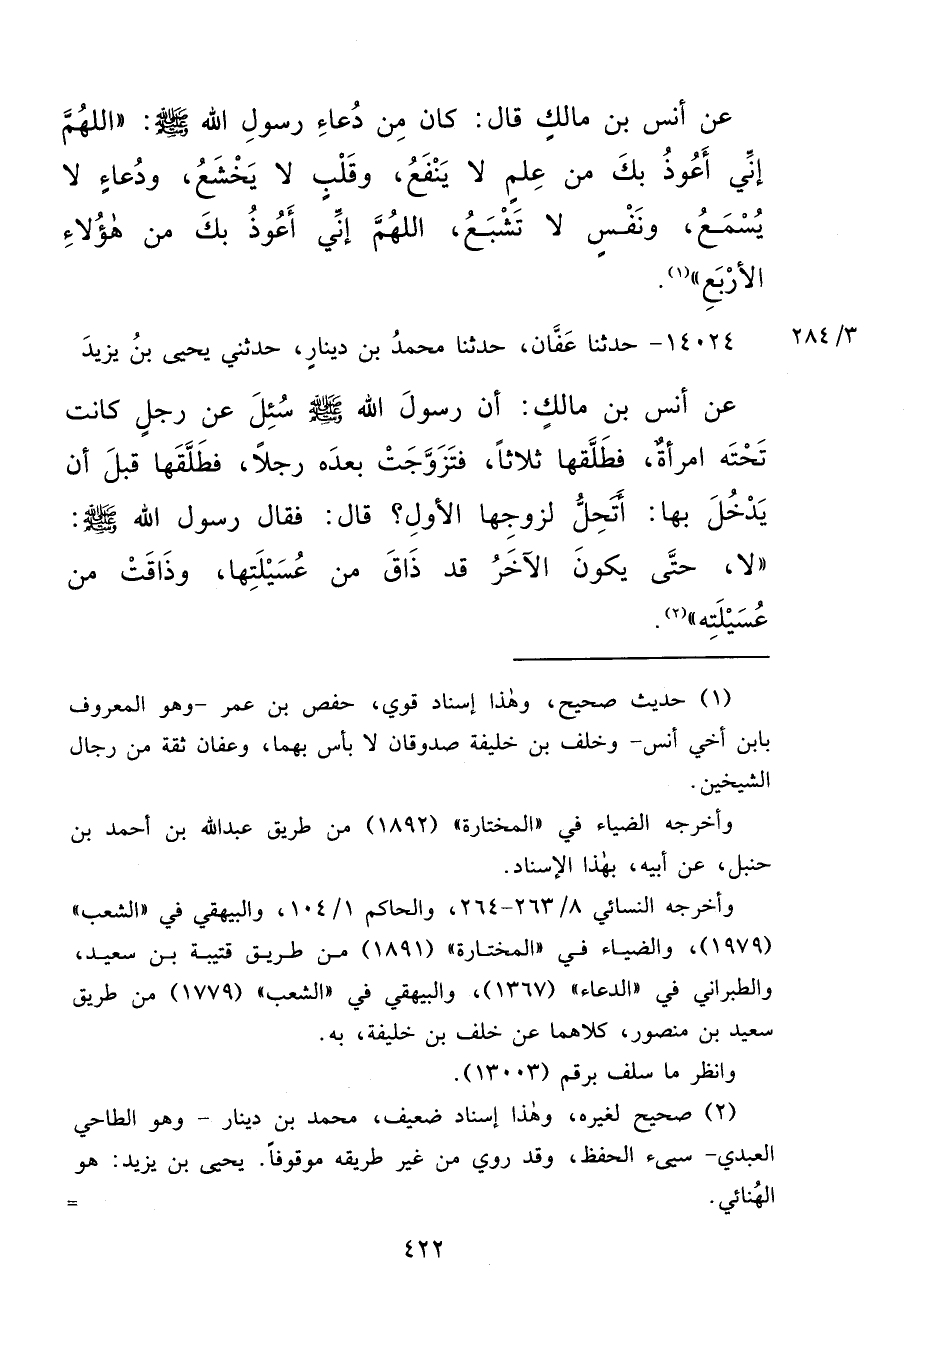 عن أنس بن مالكٍ قال: كان مِن دُعاءِ رسولِ الله ﷺ: «اللهُمَّ
إنِّي أَعُوذُ بكَ من عِلمٍ لا يَنْفَعُ، وقَلْبٍ لا يَخْشَعُ، ودُعاءٍ لا
يُسْمَعُ، ونَفْسٍ لا تَشْبَعُ، اللهُمَّ إنِّي أَعُوذُ بكَ من هٰؤُلاءِ
الأرْبَعِ»(١).
٢٨٤/٣
١٤٠٢٤- حدثنا عَفَّان، حدثنا محمدُ بن دينارٍ، حدثني يحيى بنُ يزيدَ
عن أنس بن مالكٍ: أن رسولَ الله ﷺ سُئِلَ عن رجلٍ كانت
تَحْتَه امرأةٌ، فطَلَّقها ثلاثاً، فتَزَوَّجَتْ بعدَه رجلاً، فطَلَّقَها قبلَ أن
يَدْخُلَ بها: أَتَحِلُّ لزوجِها الأولِ؟ قال: فقال رسول الله ﷺ:
«لا، حتَّى يكونَ الآخَرُ قد ذَاقَ من عُسَيْلَتِها، وذَاقَتْ من
عُسَيْلَتِه»(٢).
(١) حديث صحيح، وهٰذا إسناد قوي، حفص بن عمر -وهو المعروف
بابن أخي أنس- وخلف بن خليفة صدوقان لا بأس بهما، وعفان ثقة من رجال
الشيخين.
وأخرجه الضياء في «المختارة» (١٨٩٢) من طريق عبدالله بن أحمد بن
حنبل، عن أبيه، بهٰذا الإسناد.
وأخرجه النسائي ٢٦٣/٨-٢٦٤، والحاكم ١٠٤/١، والبيهقي في «الشعب»
(١٩٧٩)، والضياء في «المختارة» (١٨٩١) من طريق قتيبة بن سعيد،
والطبراني في «الدعاء» (١٣٦٧)، والبيهقي في «الشعب» (١٧٧٩) من طريق
سعيد بن منصور، كلاهما عن خلف بن خليفة، به.
وانظر ما سلف برقم (١٣٠٠٣).
(٢) صحيح لغيره، وهٰذا إسناد ضعيف، محمد بن دينار - وهو الطاحي
العبدي- سيىء الحفظ، وقد روي من غير طريقه موقوفاً. يحيى بن يزيد: هو
الهُنائي.
=
٤٢٢